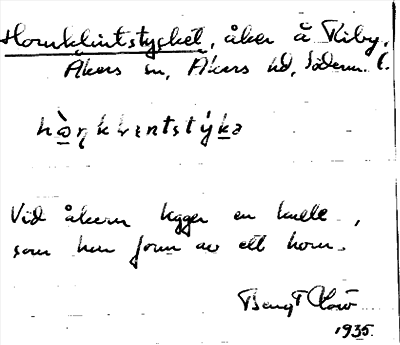 Hornklintstycket, åker å Riby,
Åkers sn, Åkers hd, Söderm. l.
Vid åkern ligger en kulle,
som har form av ett horn.
Bengt
1935.